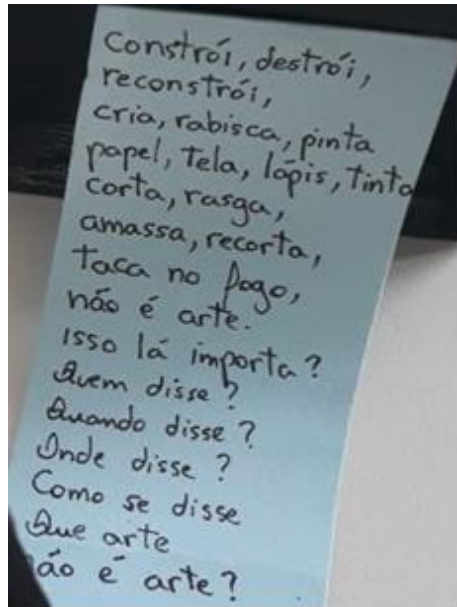 Constrói, destrói,
reconstrói,
cria, rabisca, pinta
papel, tela, lápis, tinta
corta, rasga,
amassa, recorta,
taca no fogo,
não é arte.
Isso lá importa?
Quem disse?
Quando disse?
Onde disse?
Como se disse
Que arte
não é arte?